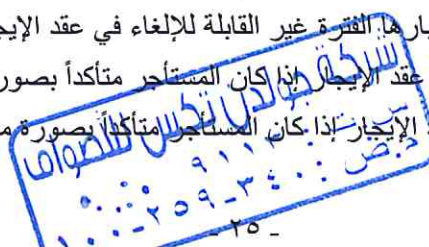 بارها الفترة غير القابلة للإلغاء في عقد الإيج
عقد الإيجار إذا كان المستأجر متأكداً بصور
الإيجار إذا كان المستأجر متأكداً بصورة م
شركة جولدن تكس للأصواف
س.ت : ٩١١٢
- ٢٥ -